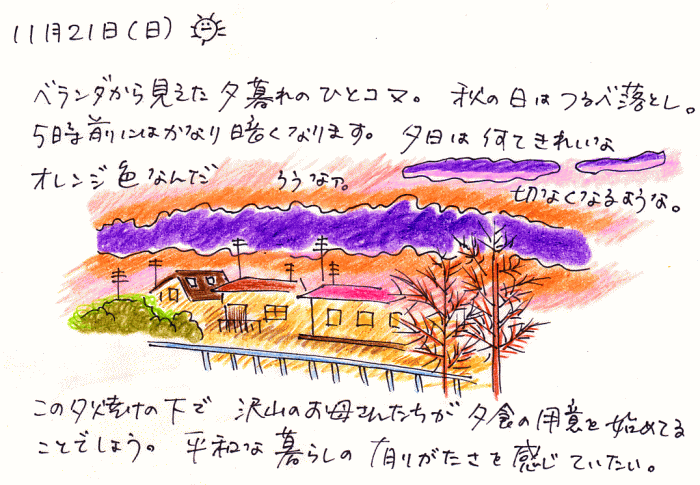 11月21日(日)
ベランダから見えた夕暮れのひとコマ。 秋の日はつるべ落とし。
5時前にはかなり暗くなります。 夕日は何てきれいな
オレンジ色なんだ ろうなア。
切なくなるような。
この夕焼けの下で 沢山のお母さんたちが 夕食の用意を始めてる
ことでしょう。 平和な暮らしの 有りがたさを感じていたい。